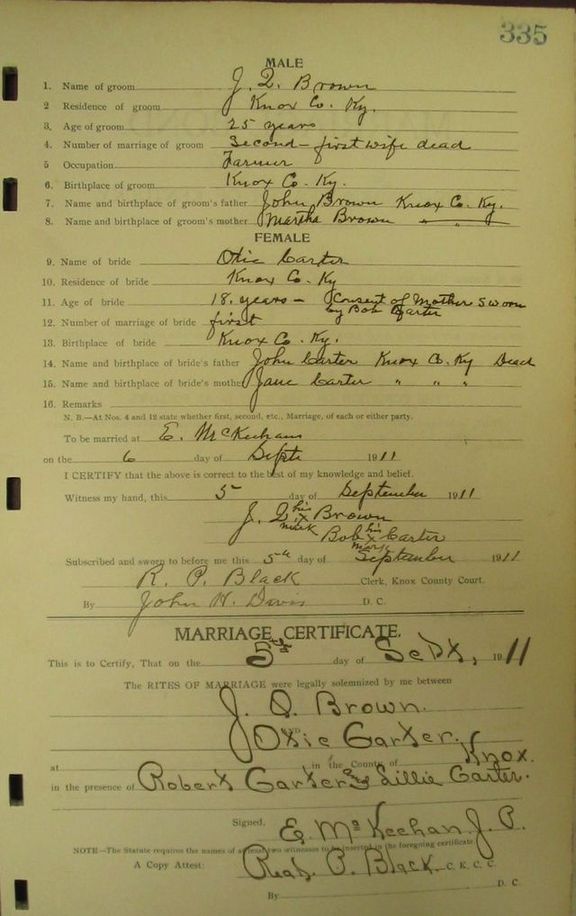 335
MALE
1. Name of groom J. Q. Brown
2 Residence of groom Knox Co. Ky.
3. Age of groom 25 years
4. Number of marriage of groom Second - first wife dead
5 Occupation Farmer
6. Birthplace of groom Knox Co. Ky.
7. Name and birthplace of groom's father John Brown Knox Co. Ky.
8. Name and birthplace of groom's mother Martha Brown " " "
FEMALE
9. Name of bride Otie Carter
10. Residence of bride Knox Co. Ky
11. Age of bride 18. years - Consent of Mother sworn
by Bob Carter
12. Number of marriage of bride first
13. Birthplace of bride Knox Co. Ky.
14. Name and birthplace of bride's father John Carter Knox Co. Ky Dead
15. Name and birthplace of bride's mother Jane Carter " " "
16. Remarks
N. B.—At Nos. 4 and 12 state whether first, second, etc., Marriage, of each or either party.
To be married at E. McKeehans
on the 6 day of Septe 1911
I CERTIFY that the above is correct to the best of my knowledge and belief.
Witness my hand, this 5 day of September 1911
J. Q. his x mark Brown
Bob his x mark Carter
Subscribed and sworn to before me this 5th day of September 1911
R. P. Black Clerk, Knox County Court.
By John W. Davis D. C.
MARRIAGE CERTIFICATE.
This is to Certify, That on the 5th day of Sept, 1911
The RITES OF MARRIAGE were legally solemnized by me between
J. Q. Brown.
AND
Otie Carter.
at in the County of Knox.
in the presence of Robert Carter and Lillie Carter.
Signed, E. McKeehan J. P.
NOTE—The Statute requires the names of at least two witnesses to be inserted in the foregoing certificate.
A Copy Attest: P. Black C. K. C. C.
By D. C.